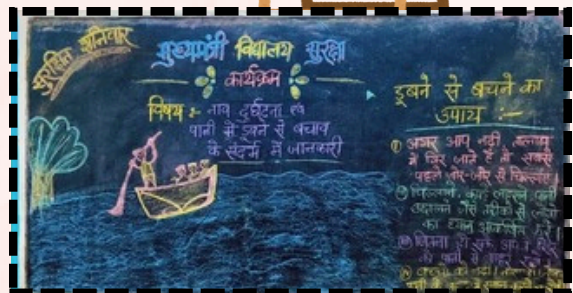 सुरक्षित शनिवार
मुख्यमंत्री विद्यालय सुरक्षा
कार्यक्रम
विषय :- नाव दुर्घटना एवं
पानी में डूबने से बचाव
के संदर्भ में जानकारी
डूबने से बचने का
उपाय :-
① अगर आप नदी, तालाब
में गिर जाते हैं तो सबसे
पहले जोर-जोर से चिल्लाएं
② चिल्लाने,
का ध्यान आकर्षित करें।
③ जितना हो सके आप
को पानी से बाहर रखें